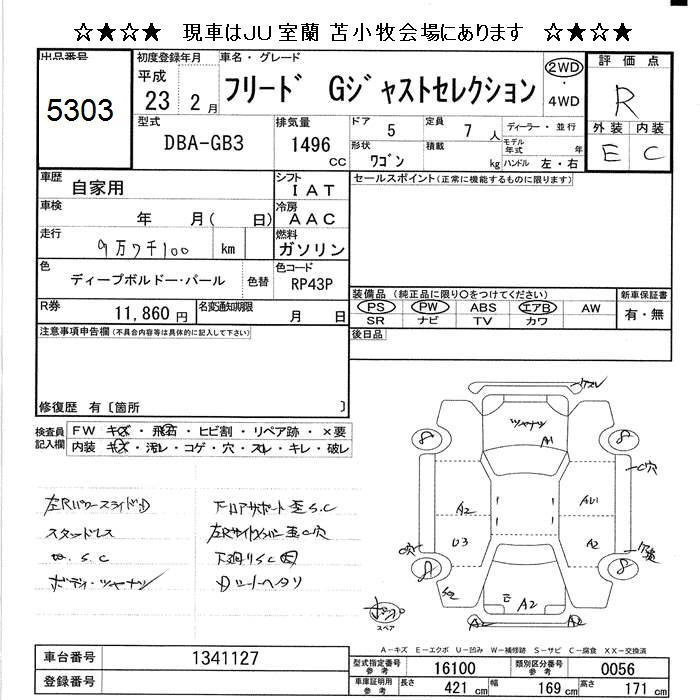 ☆★☆★ 現車はJU室蘭 苫小牧会場にあります ☆★☆★
出品番号
5303
初度登録年月
平成
23 年 2 月
車名・グレード
フリード Gジャストセレクション
2WD
・
4WD
評価点
R
外装 内装
E C
型式
DBA-GB3
排気量
1496
CC
ドア 5
定員 7 人
ディーラー・並行
形状
ワゴン
積載
kg
モデル年式 年
ハンドル 左・右
車歴
自家用
シフト
IAT
セールスポイント(正常に機能するものに限ります)
車検
年 月( 日)
冷房
AAC
走行
9万7千100 km
燃料
ガソリン
色
ディープボルドー・パール
色替
色コード
RP43P
装備品 (純正品に限り○をつけてください)
新車保証書
PS PW ABS エアB AW
SR ナビ TV カワ
有・無
R券
11,860 円
名変通知期限
月 日
後日品
注意事項申告欄(不具合内容等は具体的に記入して下さい)
修復歴 有〔箇所 〕
検査員記入欄
FW キズ・飛石・ヒビ割・リペア跡・×要
内装 キズ・汚レ・コゲ・穴・スレ・キレ・破レ
左Rパワースライド
スタッドレス
S.C
ボディ・ツヤナシ
フロアサポート歪S.C
下廻りSC
ツヤナシ
A1
A2
U3
A2
E
A2
A2
C穴
スペア
A－キズ E－エクボ U－凹み W－補修跡 S－サビ C－腐食 XX－交換済
車台番号
1341127
登録番号
型式指定番号
参考
16100
類別区分番号
参考
0056
車庫証明用
参考
長さ 421 cm
幅 169 cm
高さ 171 cm